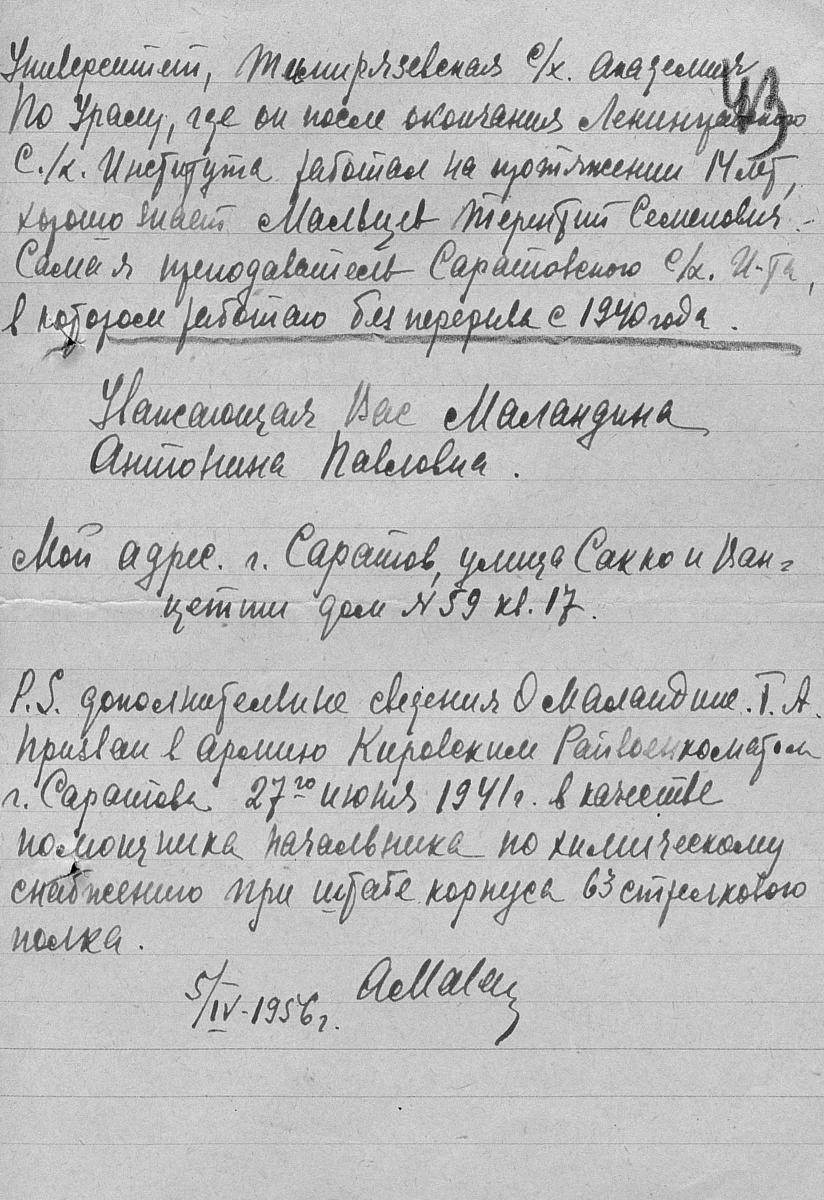 43
Университет, Тимирязевская с/х. академия
По Уралу, где он после окончания Ленинградского
С./х. Института работал на протяжении 14 лет,
хорошо знает Мальцев Терентий Семенович.
Сама я преподаватель Саратовского с/х. И-та,
в котором работаю без перерыва с 1940 года.
Уважающая Вас Маландина
Антонина Павловна.
Мой адрес. г. Саратов, улица Сакко и Ван-
цетти дом №59 кв. 17.
P.S. дополнительные сведения О Маландине. Г. А.
Призван в армию Кировским Райвоенкоматом
г. Саратова 27го июня 1941г. в качестве
помощника начальника по химическому
снабжению при штабе корпуса 63 стрелкового
полка.
5/IV-1956г.